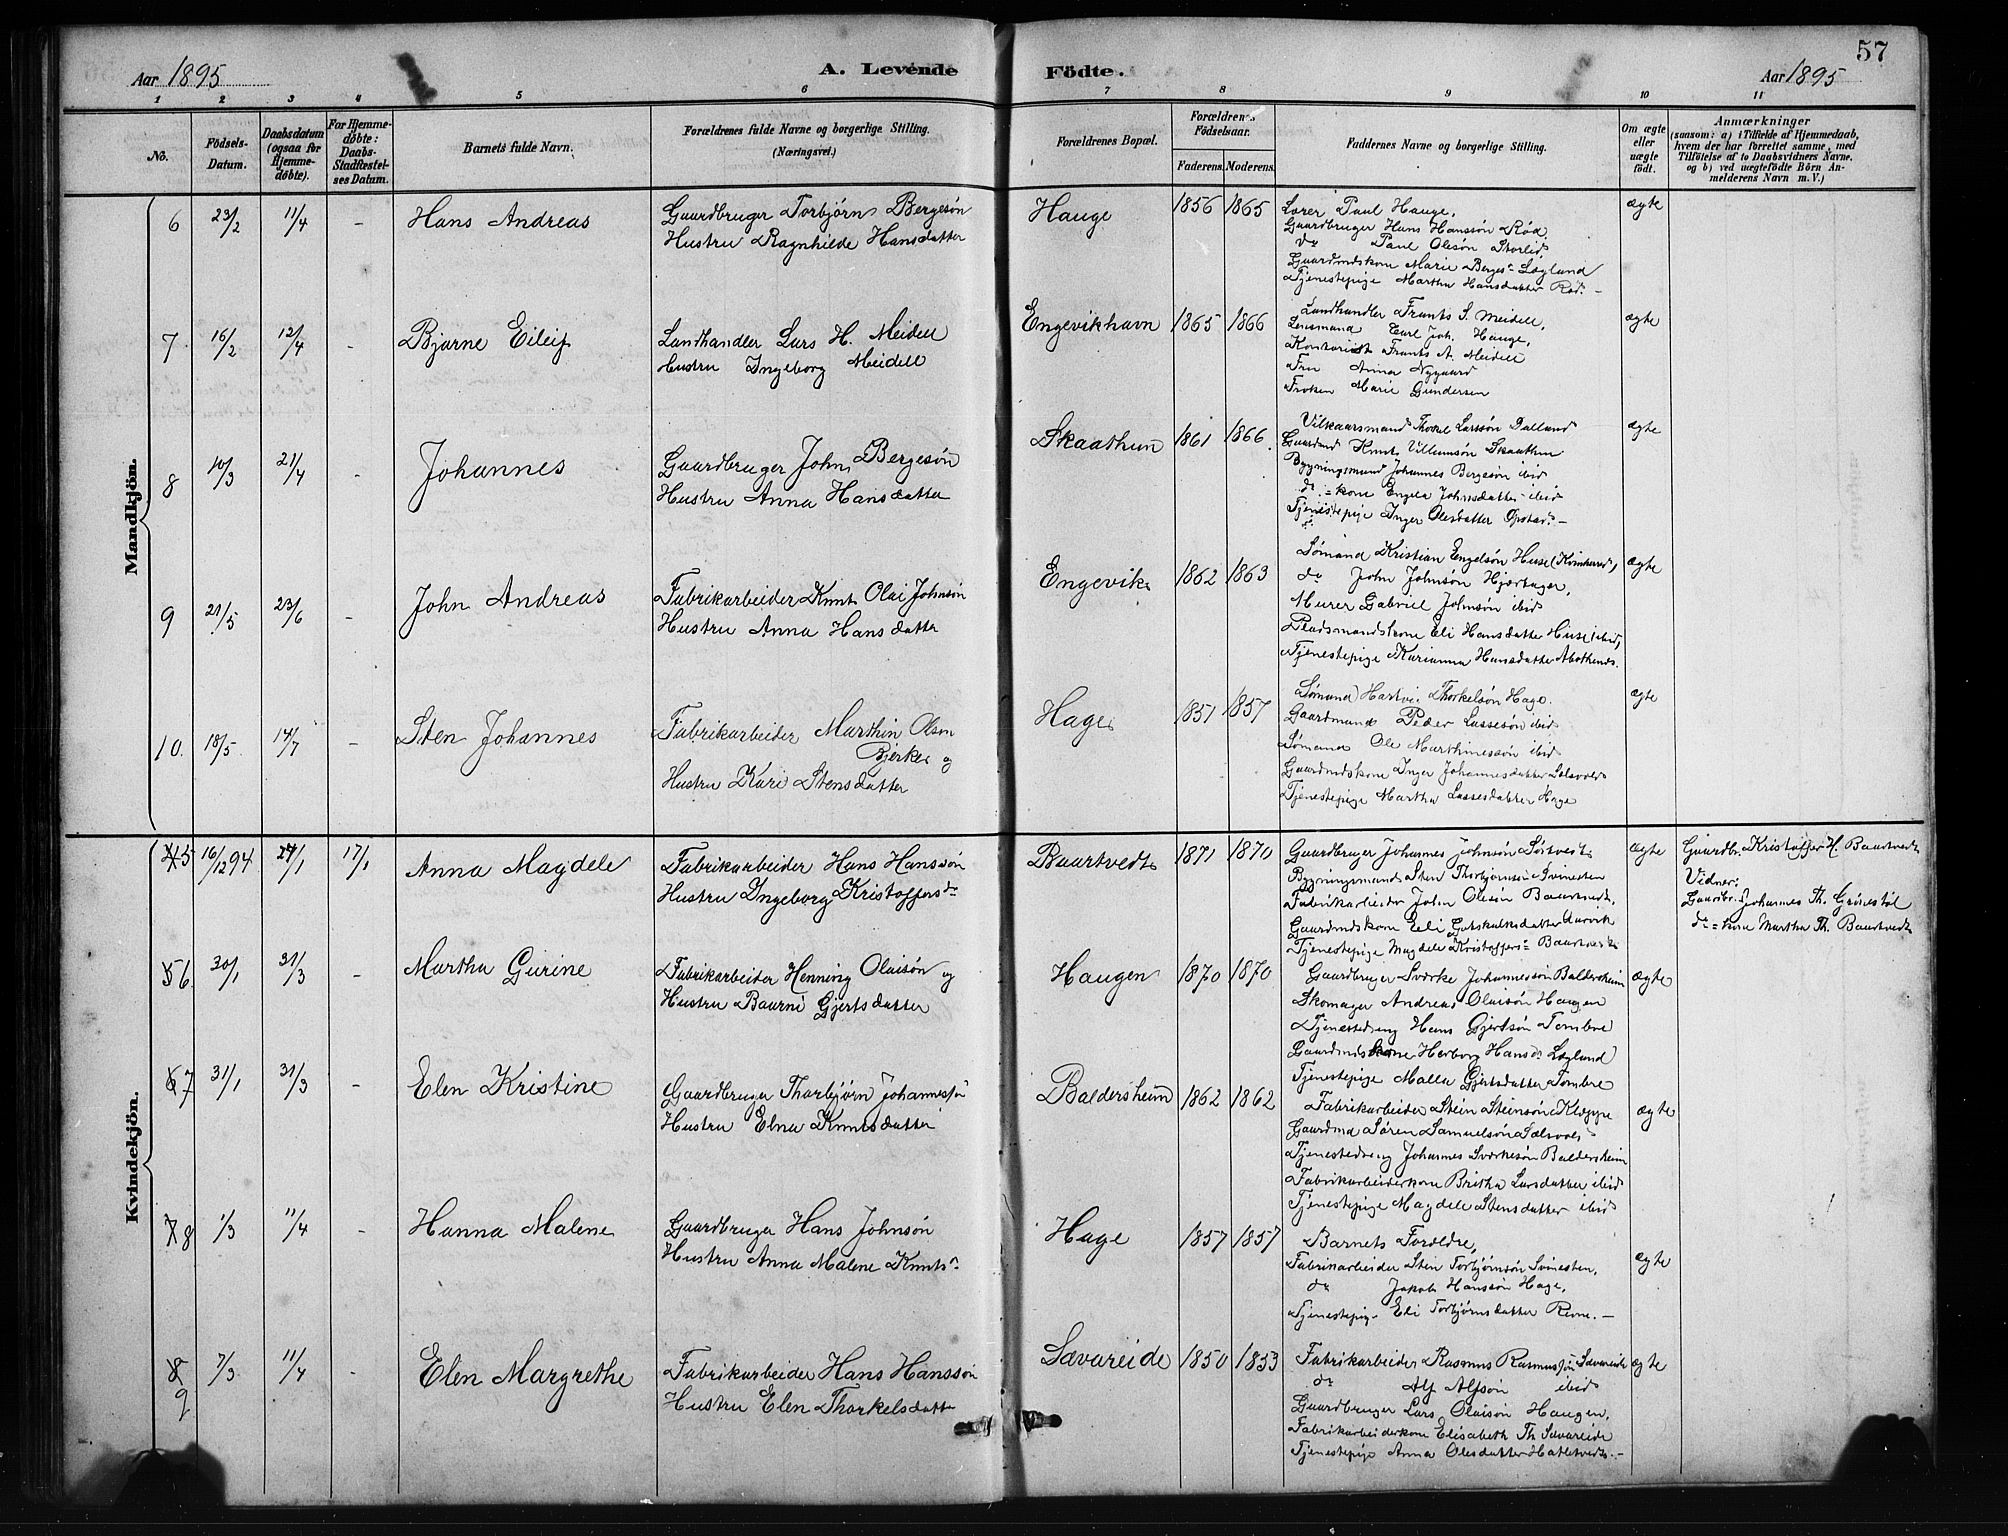 57
Aar 1895
A. Levende Födte.
Aar 1895
1 2 3 4 5 6 7 8 9 10 11
No.
Födsels-Datum.
Daabsdatum (ogsaa for Hjemme-döbte).
For Hjemme-döbte: Daabs-Stadfæstel-ses Datum.
Barnets fulde Navn.
Forældrenes fulde Navne og borgerlige Stilling. (Næringsvei.)
Forældrenes Bopæl.
Forældrenes Födselsaar.
Faderens. Moderens.
Faddernes Navne og borgerlige Stilling.
Om ægte eller uægte födt.
Anmærkninger
(saasom: a) i Tilfælde af Hjemmedaab, hvem der har forrettet samme, med Tilföielse af to Daabsvidners Navne, og b) ved uægtefödte Börn An-melderens Navn m. V.)
Mandkjön.
6 23/2 11/4 - Hans Andreas
Gaardbruger Torbjørn Bergesøn
Hustru Ragnhilde Hansdatter
Hauge 1856 1865
Lærer Paul Hauge,
Gaardbruger Hans Hanssøn Rød,
do Paul Olesøn Storlid
Gaardmdskone Marie Berges- Løglund
Tjenestepige Martha Hansdatter Rød. -
ægte
7 16/2 12/4 - Bjarne Eileif
Landhandler Lars H. Meidell
Hustru Ingeborg Meidell
Engevikhavn 1865 1866
Landhandler Frants S. Meidell,
Lensmand Carl Joh. Hauge,
Kontorist Frants A. Meidell
Fru Anna Nygaard
Frøken Marie Gundersen
ægte
8 10/3 21/4 - Johannes
Gaardbruger John Bergesøn
Hustru Anna Hansdatter
Skaathun 1861 1866
Vilkaarsmand Thorkel Larssøn Dalland
Gaardmd Knut Villumsøn Skaathun
Bygningsmand Johannes Bergesøn ibid
do = kone Engela Johnsdatter ibid
Tjenestepige Inger Olesdatter Opstad. -
ægte
9 21/5 23/6 - John Andreas
Fabrikarbeider Knut Olai Johnsøn
Hustru Anna Hansdatter
Engevik 1862 1863
Sømand Kristian Engelsøn Huse (Kvinherred),
do John Johnsøn Hjartager,
Murer Gabriel Johnsøn ibid
Pladsmandskone Eli Hansdatter Huse ibid,
Tjenestepige Karianna Hansdatter
ægte
10. 18/5 14/7 - Sten Johannes
Fabrikarbeider Marthin Olson
Bjerke og
Hustru Kari Stensdatter
Hage 1851 1857
Sømand Hartvi Thorkelsøn Hage.
Gaardmand Peder Lassesøn ibid
Sømand Ole Marthinessøn ibid
Gaardmdskone Inger Johannesdatter Sælsvold
Tjenestepige Martha Lassesdatter Hage
ægte
Kvindekjön.
5 16/12 94 27/1 17/1 Anna Magdele
Fabrikarbeider Hans Hanssøn
Hustru Ingeborg Kristoffersdr
Baartvedt 1871 1870
Gaardbruger Johannes Johnsøn Sørtvedt
Bygningsmand Sten Thorbjørnsøn Svinesten
Fabrikarbeider John Olesøn Baartvedt,
Gaardmdskone Eli Gotskalksdatter Aarvik
Tjenestepige Magdele Kristoffers- Baartvedt
ægte
Gaardbr. Kristoffer H. Baartvedt
Vidner:
Gaardbr. Johannes Th. Grønestøl
do = kone Martha Th. Baartvedt
6 30/1 31/3 - Martha Gurine
Fabrikarbeider Henning Olaisøn og
Hustru Baarni Gjertsdatter
Haugen 1870 1870
Gaardbruger Sværke Johannessøn Baldersheim
Skomager Andreas Olaisøn Haugen
Tjenestedreng Hans Gjertsøn Tombre
Gaardmdskone Herborg Hansdr Løglund
Tjenestepige Malla Gjertsdatter Tombre
ægte
7 31/1 31/3 - Elen Kristine
Gaardbruger Thorbjørn Johannessøn
Hustru Elna Knutsdatter
Baldersheim 1862 1862
Fabrikarbeider Stein Steinsøn Kleppe
Gaardmd Søren Samuelsøn Sælsvold
Tjenestedreng Johannes Sværkesøn Baldersheim
Fabrikarbeiderkone Britha Larsdatter ibid
Tjenestepige Magdele Stensdatter ibid
ægte
8 1/3 11/4 - Hanna Malene
Gaardbruger Hans Johnsøn
Hustru Anna Malene Knutsdr
Hage 1857 1857
Barnets Forældre,
Fabrikarbeider Sten Torbjørnsøn Svinesten,
do Jakob Hanssøn Hage,
Tjenestepige Eli Torbjørnsdatter Revne. -
ægte
9 7/3 11/4 - Elen Margrethe
Fabrikarbeider Hans Hanssøn
Hustru Elen Thorkelsdatter
Sævareide 1850 1853
Fabrikarbeider Rasmus Rasmussøn Sævareide
do Alf Alfsøn ibid
Gaardbruger Lars Olaisøn Haugen,
Fabrikarbeiderkone Elisabeth Th Sævareide
Tjenestepige Anna Olesdatter Hatletvedt. -
ægte